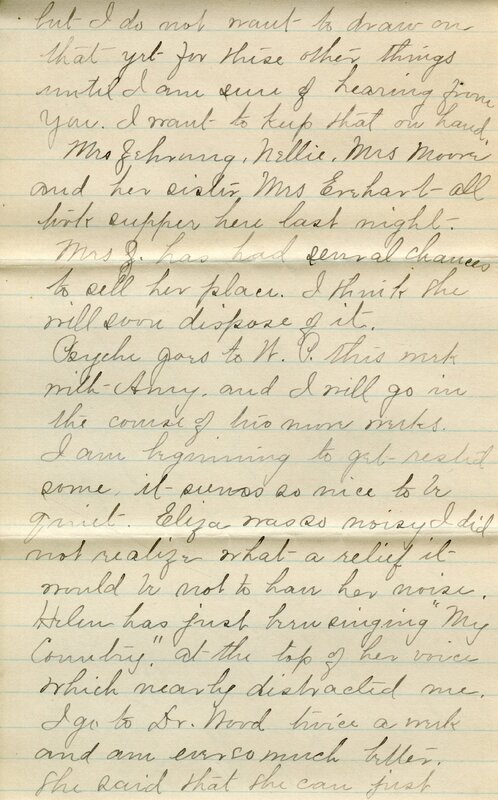 but I do not want to draw on
that yet for these other things
until I am sure of hearing from
you. I want to keep that on hand.
Mrs Zehrung, Nellie, Mrs Moore
and her sister Mrs Erehart all
took supper here last night.
Mrs Z. has had several chances
to sell her place. I think she
will soon dispose of it.
Psyche goes to W. P. this week
with Amy, and I will go in
the course of two more weeks.
I am beginning to get rested
some, it seems so nice to be
quiet. Eliza was so noisy I did
not realize what a relief it
would be not to have her noise.
Helen has just been singing "My
Country," at the top of her voice
which nearly distracted me.
I go to Dr. Wood twice a week
and am ever so much better.
She said that she can just